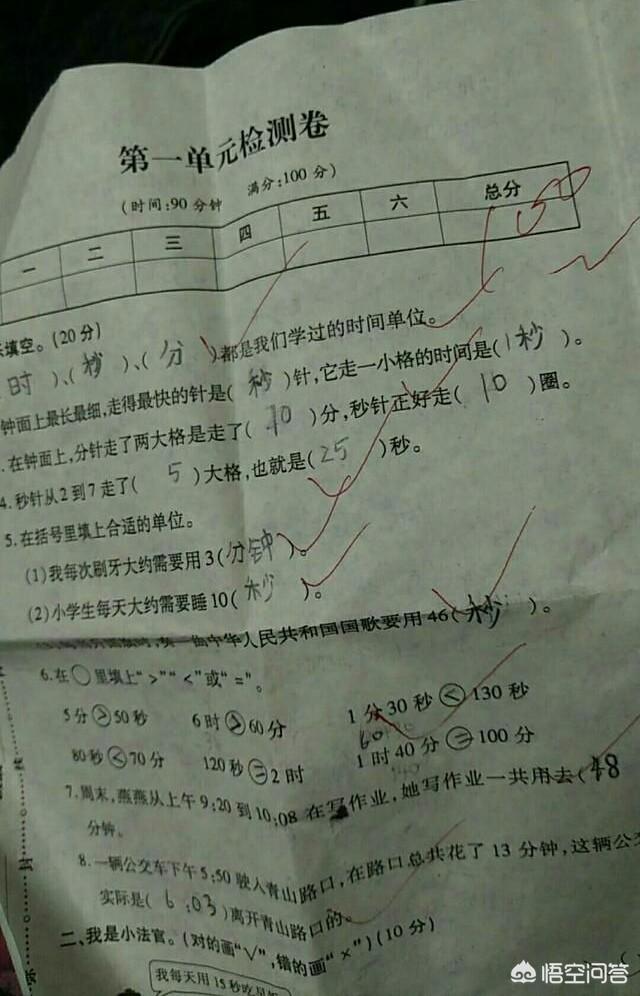 第一单元检测卷
(时间:90分钟 满分:100分)
一 二 三 四 五 六 总分
填空。(20分)
时)、(秒)、(分)都是我们学过的时间单位。
钟面上最长最细,走得最快的针是(秒)针,它走一小格的时间是(1秒)。
.在钟面上,分针走了两大格是走了(10)分,秒针正好走(10)圈。
4.秒针从2到7走了(5)大格,也就是(25)秒。
5.在括号里填上合适的单位。
(1)我每次刷牙大约需要用3(分钟)。
(2)小学生每天大约需要睡10(秒)。
中华人民共和国国歌要用46(秒)。
6.在○里填上“>”“<”或“=”。
5分>50秒 6时>60分 1分30秒<130秒
60
80秒<70分 120秒=2时 1时40分=100分
7.周末,燕燕从上午9:20到10:08在写作业,她写作业一共用去(48
分钟。
8.一辆公交车下午5:50驶入青山路口,在路口总共花了13分钟,这辆公交
实际是(6:03)离开青山路口的。
二、我是小法官。(对的画“√”,错的画“×”)(10分)
我每天用15秒吃早饭
悟空问答